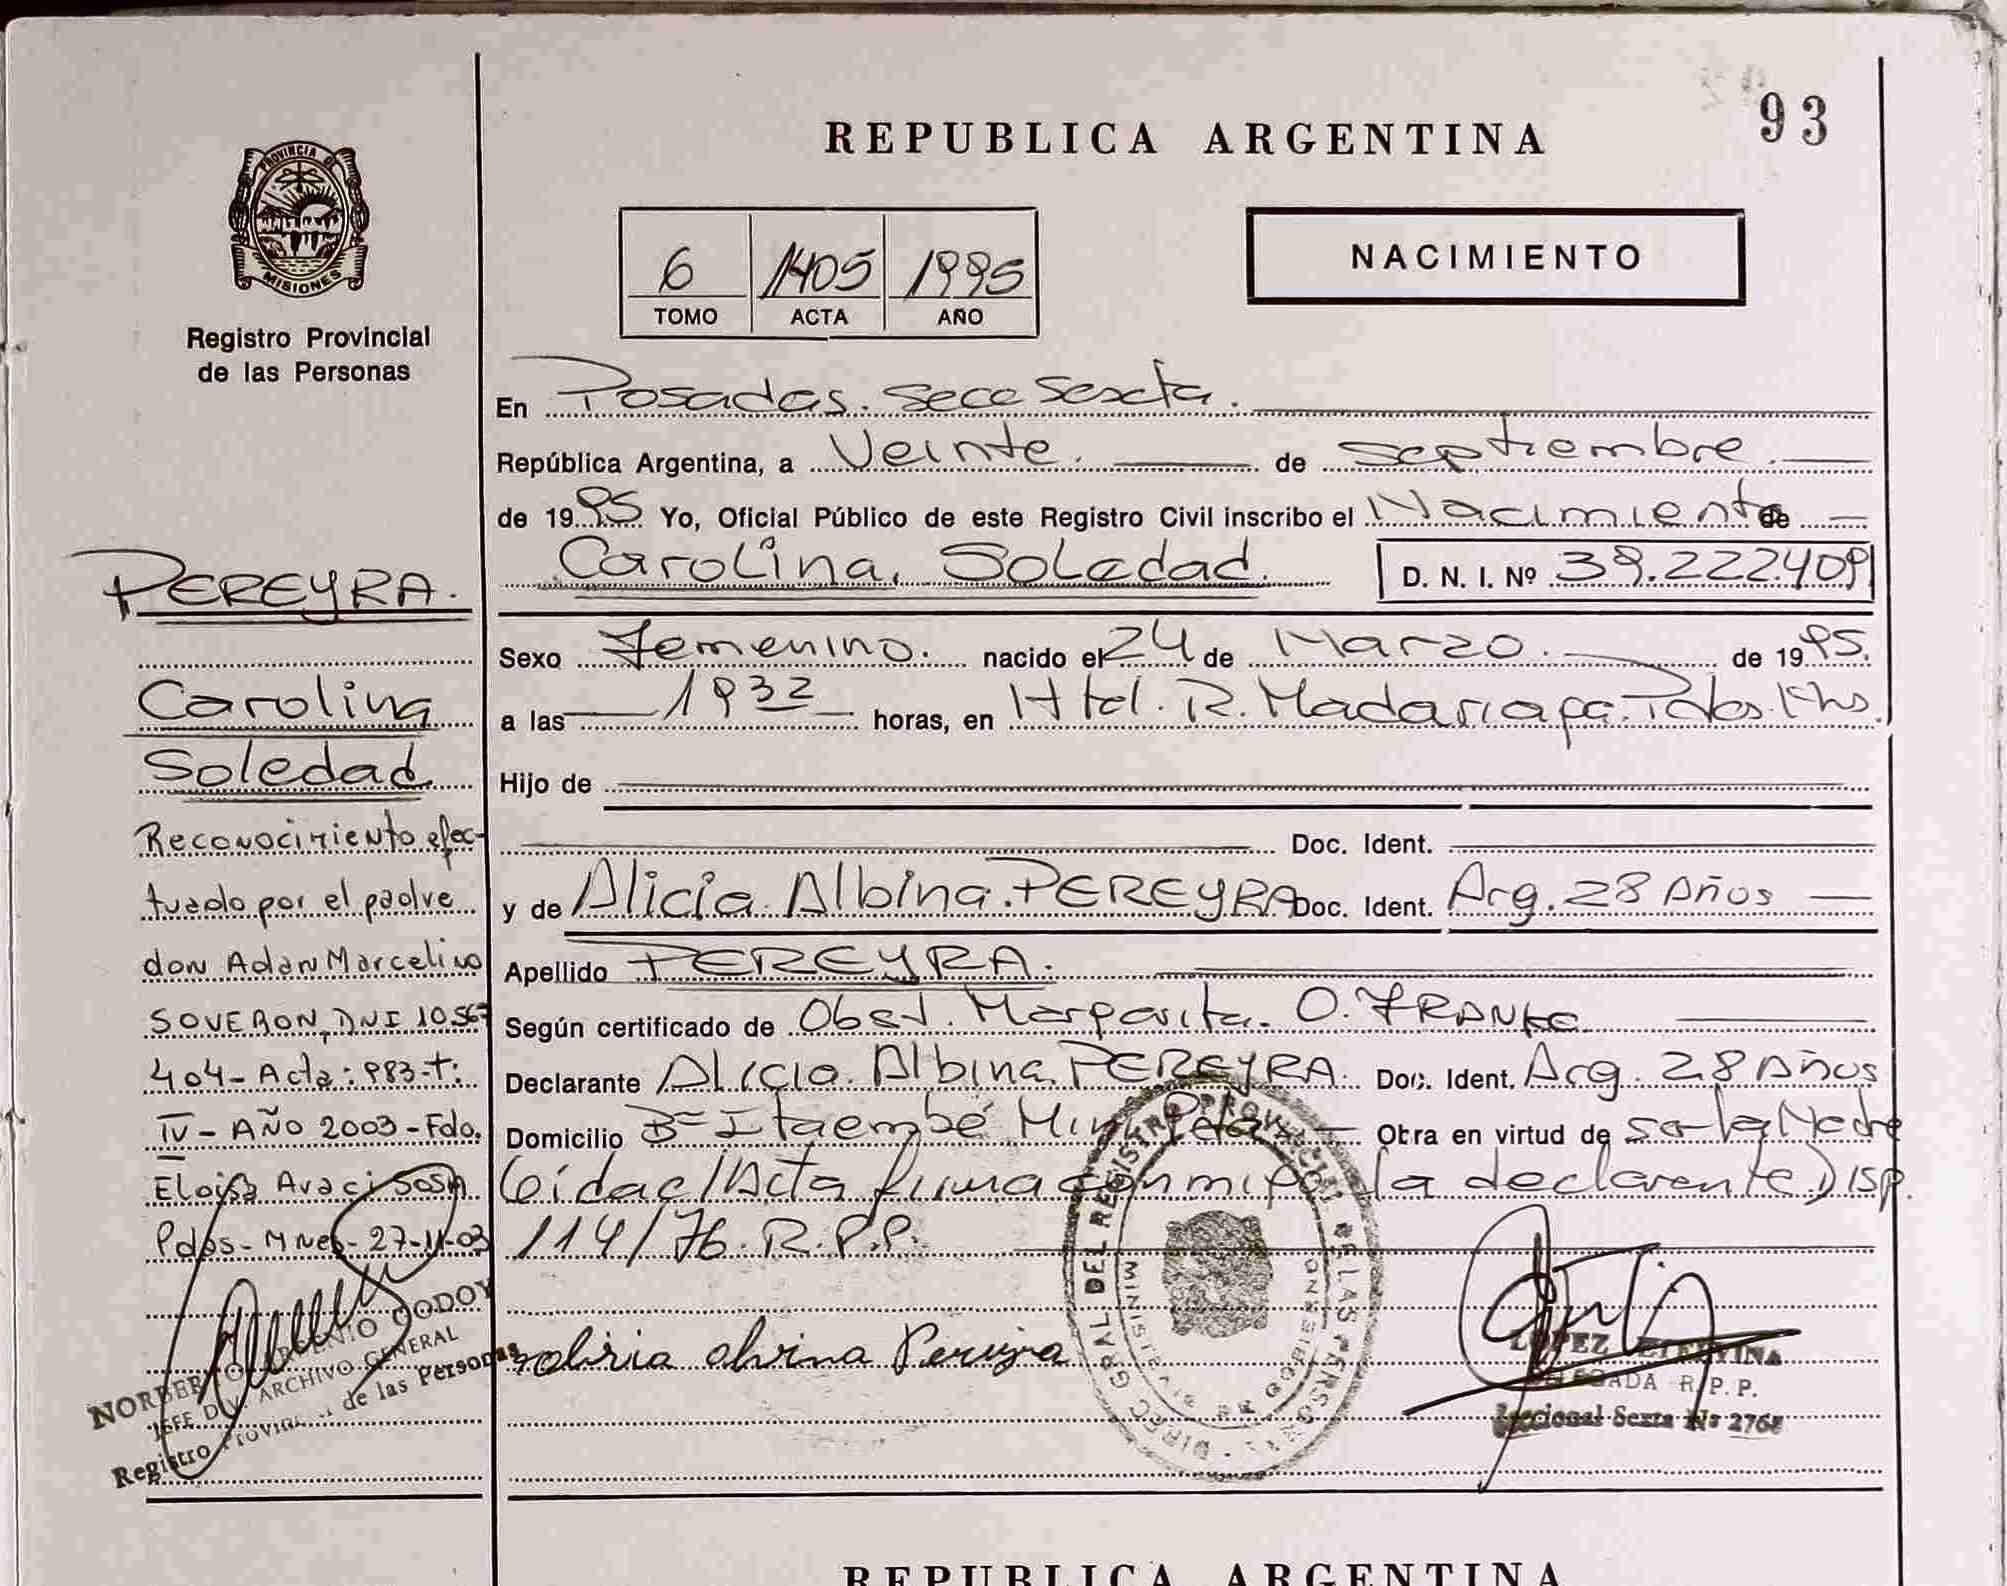 93
REPUBLICA ARGENTINA
PROVINCIA DE
MISIONES
Registro Provincial
de las Personas
6 1405 1995
TOMO ACTA AÑO
NACIMIENTO
En Posadas. Secc Sexta.
República Argentina, a Veinte. de septiembre.
de 1995 Yo, Oficial Público de este Registro Civil inscribo el Nacimiento de
Carolina, Soledad. D. N. I. Nº 39.222.409
Sexo Femenino. nacido el 24 de Marzo. de 1995.
a las 1932 horas, en Htal. R. Madariaga. Pdas.
Hijo de
Doc. Ident.
y de Alicia Albina. PEREYRA Doc. Ident. Arg. 28 Años
Apellido PEREYRA.
Según certificado de Obst. Margarita. O. FRANKE
Declarante Alicia Albina PEREYRA. Doc. Ident. Arg. 28 Años
Domicilio Bº Itaembé Mini Pdas. Obra en virtud de ser la Madre
Leida el Acta firma conmigo la declarante Disp.
114/76. R.P.P.
PEREYRA.
Carolina
Soledad
Reconocimiento efec-
tuado por el padre
don Adan Marcelino
SOVERON, DNI 10.567
404- Acta: 983-T:
IV- AÑO 2003-Fdo.
Eloisa Araci Sosa
Pdas- Mnes- 27-11-03
NORBERTO GODOY
JEFE DIV. ARCHIVO GENERAL
Registro Provincial de las Personas
DIREC. GRAL. DEL REGISTRO PROVINCIAL DE LAS PERSONAS
alvina Pereyra
LOPEZ ETELVINA
DELEGADA R. P. P.
Seccional Sexta Nº 2768
REPUBLICA ARGENTINA